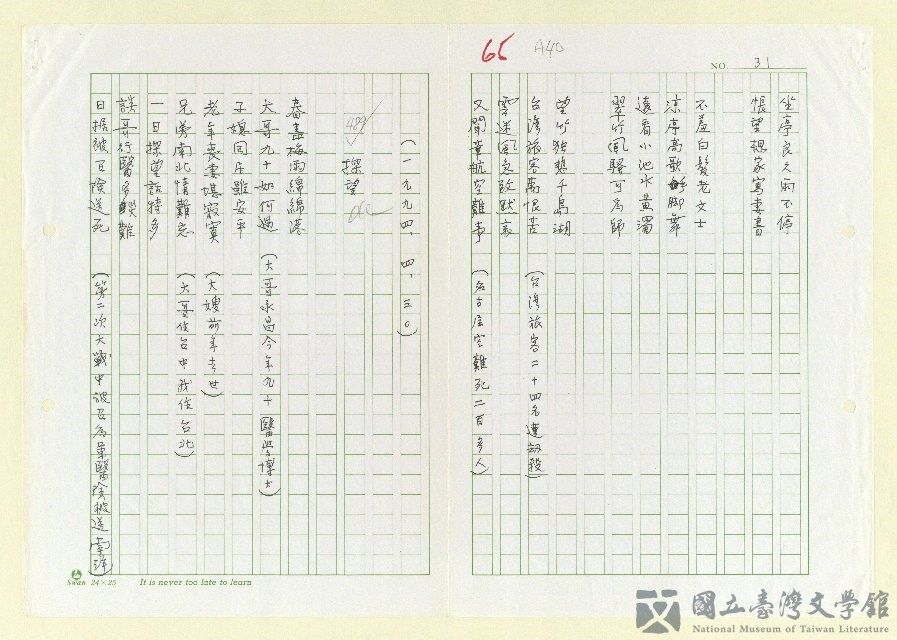 65
A40
NO. 31
坐亭良久雨不停
悵望想家寫妻書
不羞白髮老文士
涼亭高歌解腳舞
遠看小池水黃濁
翠竹風騷可為師
望竹獨悲千島湖
台灣旅客萬恨苦 (台灣旅客二十四名遭劫殺)
雲迷風急致默哀
又聞華航空難事 (名古屋空難死二百多人)
(一九九四、四、三〇)
探望
春盡梅雨綿綿落
大哥九十如何過 (大哥永昌今年九十醫學博士)
子媳同居雖安事
老年喪妻堪寂寞 (大嫂前年去世)
兄弟南北情難忘 (大哥住台中我住台北)
一日探望話特多
談哥行醫多災難
日据被召險送死 (第二次大戰中被召為軍醫險被送南洋)
Swan 24×25 It is never too late to learn
國立臺灣文學館
National Museum of Taiwan Literature